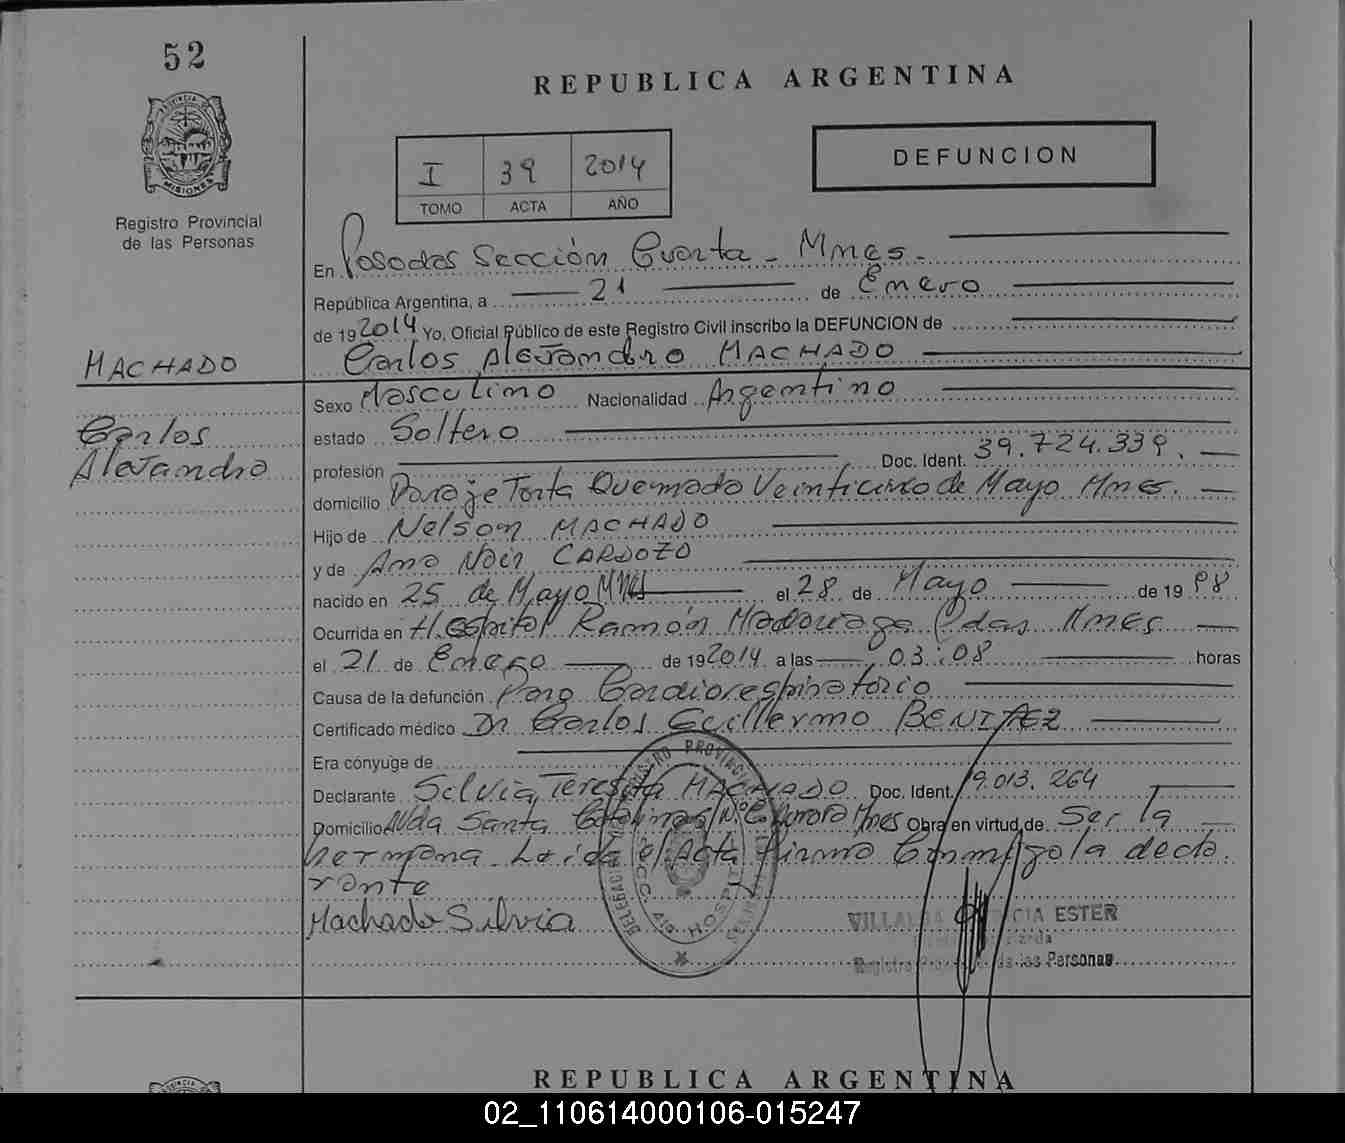 52
REPUBLICA ARGENTINA
PROVINCIA DE
MISIONES
DEFUNCION
I 39 2014
TOMO ACTA AÑO
Registro Provincial
de las Personas
En Posadas Sección Cuarta - Mnes.
República Argentina, a 21 de Enero
de 19 2014 Yo, Oficial Público de este Registro Civil inscribo la DEFUNCION de
MACHADO
Carlos Alejandro MACHADO
Sexo Masculino Nacionalidad Argentino
Carlos
estado Soltero
Alejandro
profesión Doc. Ident. 39.724.339.
domicilio Paraje Torta Quemada Veinticinco de Mayo Mnes.
Hijo de Nelson MACHADO
y de Ana CARDOZO
nacido en 25 de Mayo Mnes el 28 de Mayo de 19
Ocurrida en Hospital Ramón Madariaga Pdas Mnes
el 21 de Enero de 19 2014 a las 03:08 horas
Causa de la defunción Paro Cardiorespiratorio
Certificado médico Dr Carlos Guillermo BENITEZ
Era cónyuge de
Declarante Silvia Teresita MACHADO Doc. Ident. 19.013.264
Domicilio Avda Santa Catalina Mnes Obra en virtud de Ser la
hermana. Leída el Acta Firma Conmigo la decla
rante
Machado Silvia
VILLALBA ESTER
Registro Provincial de las Personas
REPUBLICA ARGENTINA
02_110614000106-015247